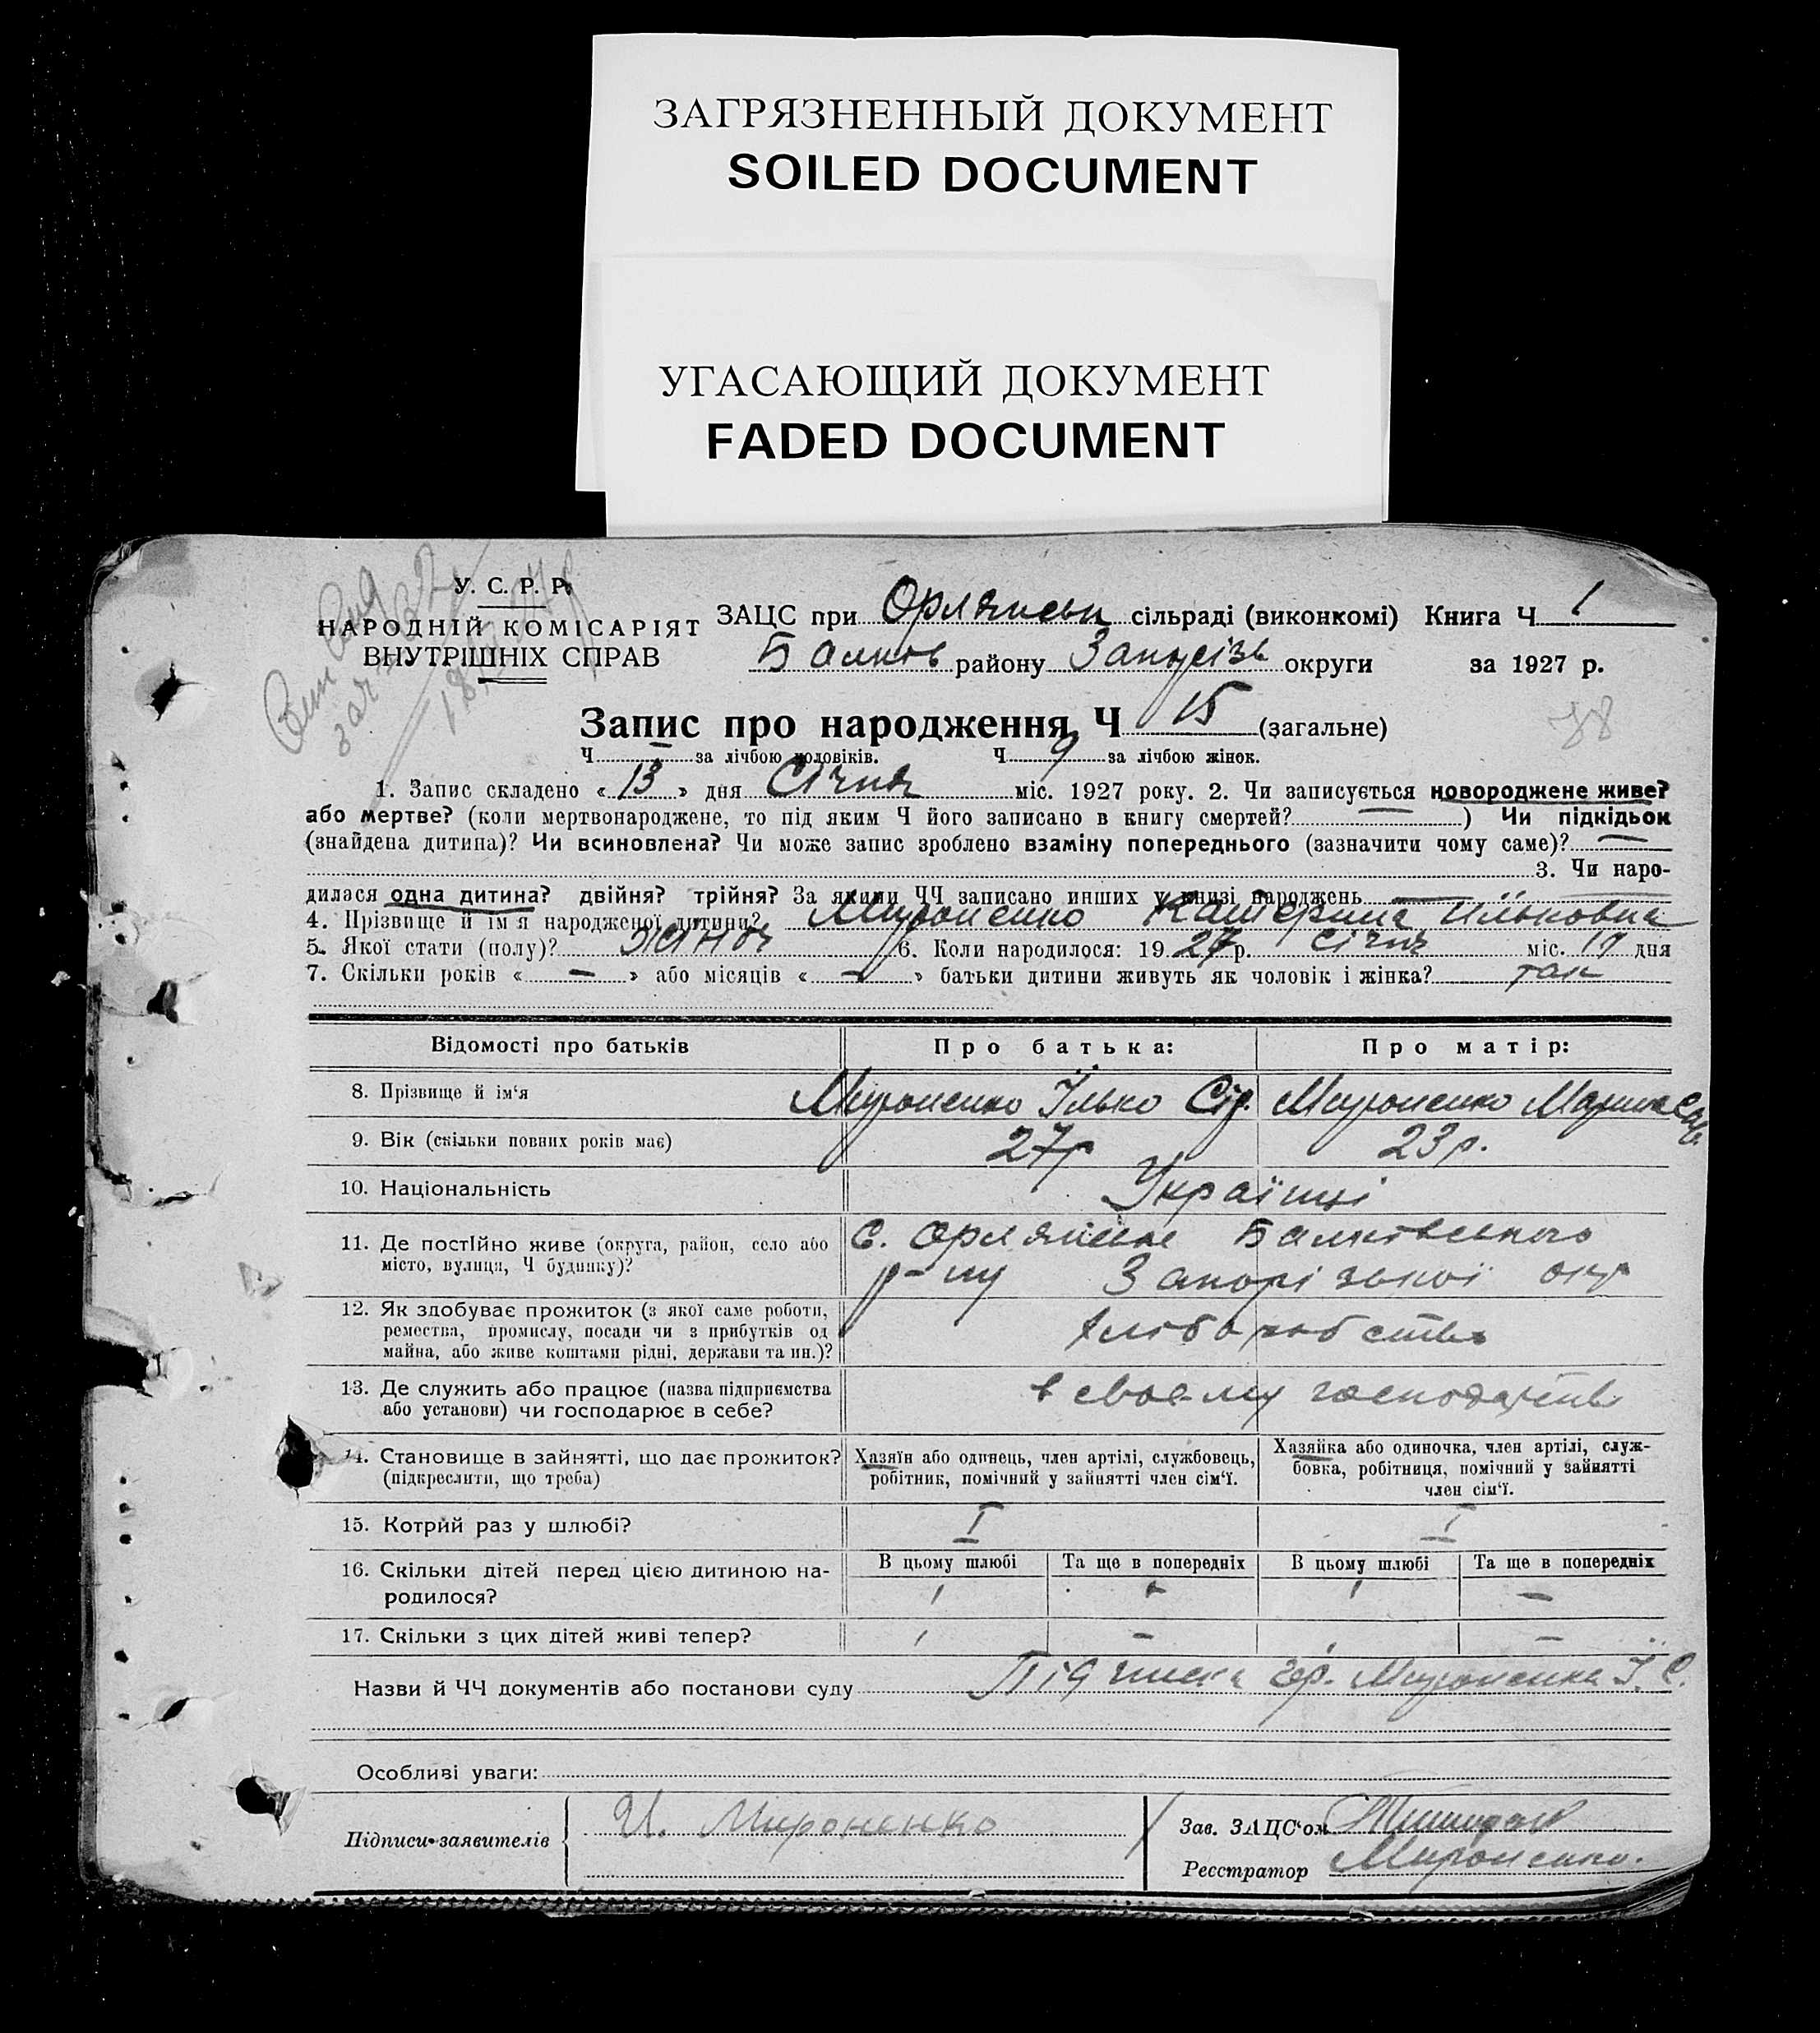 ЗАГРЯЗНЕННЫЙ ДОКУМЕНТ
SOILED DOCUMENT
УГАСАЮЩИЙ ДОКУМЕНТ
FADED DOCUMENT
У. С. Р. Р.
НАРОДНІЙ КОМІСАРІЯТ
ВНУТРІШНІХ СПРАВ
ЗАЦС при Орлянськ сільраді (виконкомі) Книга Ч 1
Балків району Запоріз округи за 1927 р.
Запис про народження Ч 15 (загальне)
38
Ч — за лічбою чоловіків. Ч 9 за лічбою жінок.
1. Запис складено « 13 » дня Січня міс. 1927 року. 2. Чи записується новороджене живе?
або мертве? (коли мертвонароджене, то під яким Ч його записано в книгу смертей? — ) Чи підкідьок
(знайдена дитина)? Чи всиновлена? Чи може запис зроблено взаміну попереднього (зазначити чому саме)? —
3. Чи наро-
дилася одна дитина? двійня? трійня? За якими ЧЧ записано инших у книзі народжень —
4. Прізвище й ім'я народженої дитини? Мироненко Катерина Ильковна
5. Якої стати (полу)? жіноч 6. Коли народилося: 19 27 р. січня міс. дня
7. Скільки років « — » або місяців « — » батьки дитини живуть як чоловік і жінка? так
Відомості про батьків Про батька: Про матір:
8. Прізвище й ім'я Мироненко Ілько Мироненко
9. Вік (скільки повних років має) 27р 23р.
10. Національність Українці
11. Де постійно живе (округа, район, село або С. Орлянське Балківського
місто, вулиця, Ч будинку)? р-ну Запорізької окр
12. Як здобуває прожиток (з якої саме роботи,
ремества, промислу, посади чи з прибутків од
майна, або живе коштами рідні, держави та ин.)? хліборобство
13. Де служить або працює (назва підприємства
або установи) чи господарює в себе? в своєму господарстві
14. Становище в зайнятті, що дає прожиток?
(підкреслити, що треба)
Хазяїн або одинець, член артілі, службовець,
робітник, помічний у зайнятті член сім'ї.
Хазяйка або одиночка, член артілі, служ-
бовка, робітниця, помічний у зайнятті
член сім'ї.
15. Котрий раз у шлюбі? I I
16. Скільки дітей перед цією дитиною на-
родилося?
В цьому шлюбі Та ще в попередніх В цьому шлюбі Та ще в попередніх
1 — 1 —
17. Скільки з цих дітей живі тепер? 1 — 1 —
Назви й ЧЧ документів або постанови суду Підписка гр. Мироненка І. С.
Особливі уваги:
Підписи заявителів И. Мироненко
Зав. ЗАЦС'ом
Реєстратор Мироненко.